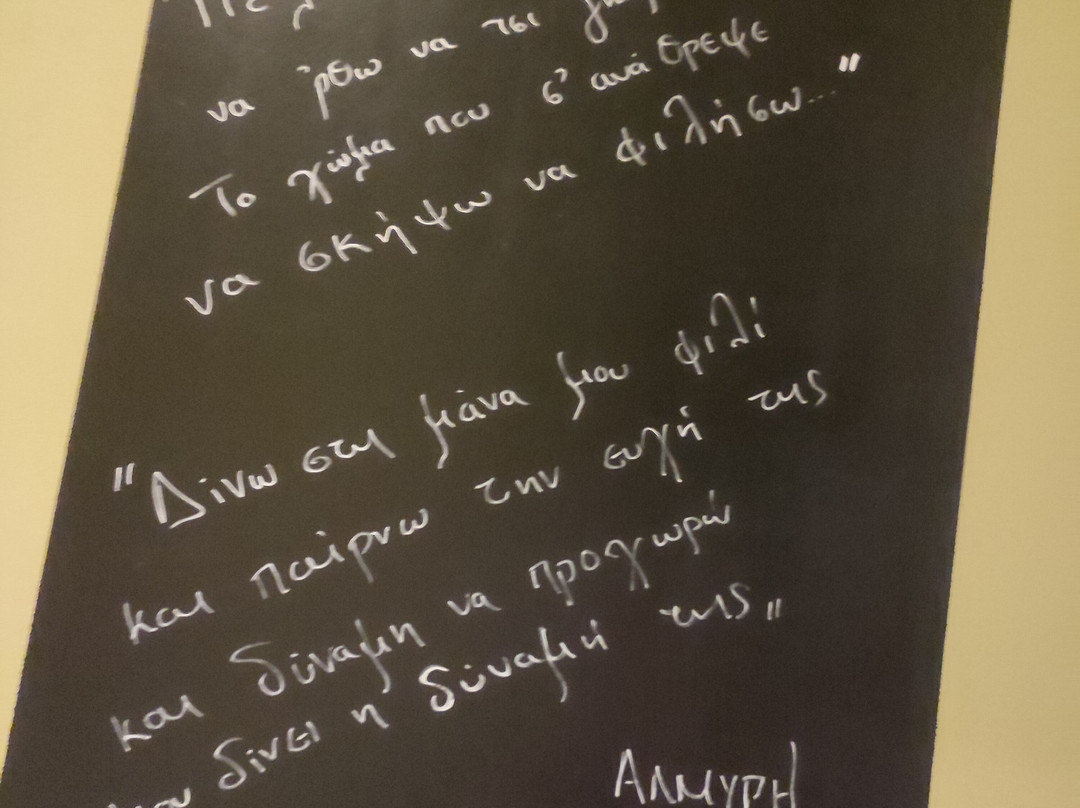 να 'ρθω να τσι
Το χώμα που σ' ανάθρεψε
να σκήψω να φιλήσω..."
"Δίνω στη μάνα μου φιλί
και παίρνω την ευχή της
και δύναμη να προχωρώ
μου δίνει η δύναμή της"
ΑΛΜΥΡΗ